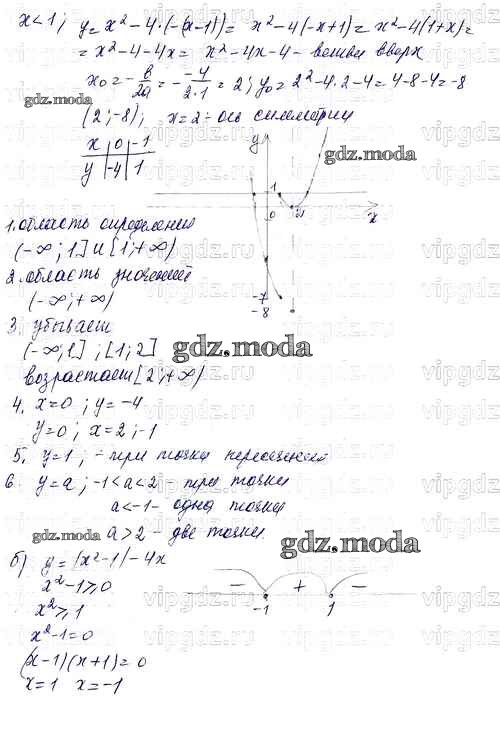 x<1; y=x²-4·(-(x-1))= x²-4(-x+1)= x²-4(1+x)=
=x²-4-4x= x²-4x-4- ветви вверх
x₀=-b/2a=-(-4)/(2·1)=2; y₀=2²-4·2-4=4-8-4=-8
gdz.moda
(2;-8); x=2- ось симметрии
x 0 -1
y -4 1
y
gdz.moda
1
0
x
-7
-8
1. область определения
(-∞;1] и [1;+∞)
2. область значений
(-∞;+∞)
3. убывает
(-∞;1] ; [1;2]
gdz.moda
возрастает [2;+∞)
4. x=0 ; y=-4
y=0; x=2;-1
5. y=1; - три точки пересечения
6. y=a; -1<a<2 - три точки
a<-1- одна точка
gdz.moda
a>2 - две точки
gdz.moda
б) y=|x²-1|-4x
x²-1≥0
x²≥1
x²-1=0
(x-1)(x+1)=0
x=1 x=-1
- + -
-1 1
vipgdz.ru